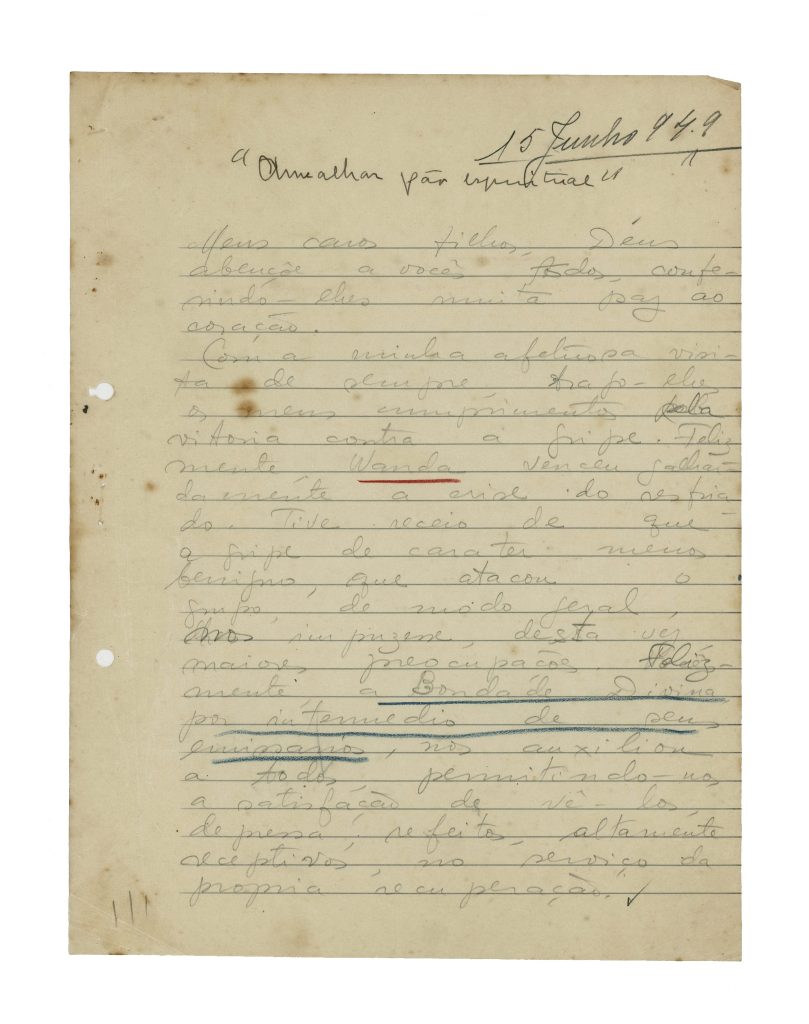 15 Junho 949
"Amealhar pão espiritual"
Meus caros filhos, Deus
abençõe a vocês todos, confe-
rindo-lhes muita paz ao
coração.
Com a minha afetuosa visi-
ta de sempre, trago-lhes
os meus cumprimentos pella
vitoria contra a gripe. Feliz
mente, Wanda venceu galhar-
damente a crise do resfria
do. Tive receio de que
a gripe de carater menos
benigno, que atacou o
grupo, de modo geral,
nos impuzesse, desta vez
maiores preocupações. Feliz-
mente, a Bondade Divina
por intermedio de seus
emissarios, nos auxiliou
a todos permitindo-nos
a satisfação de vê-los,
depressa, refeitos, altamente
receptivos, no serviço da
propria recuperação.